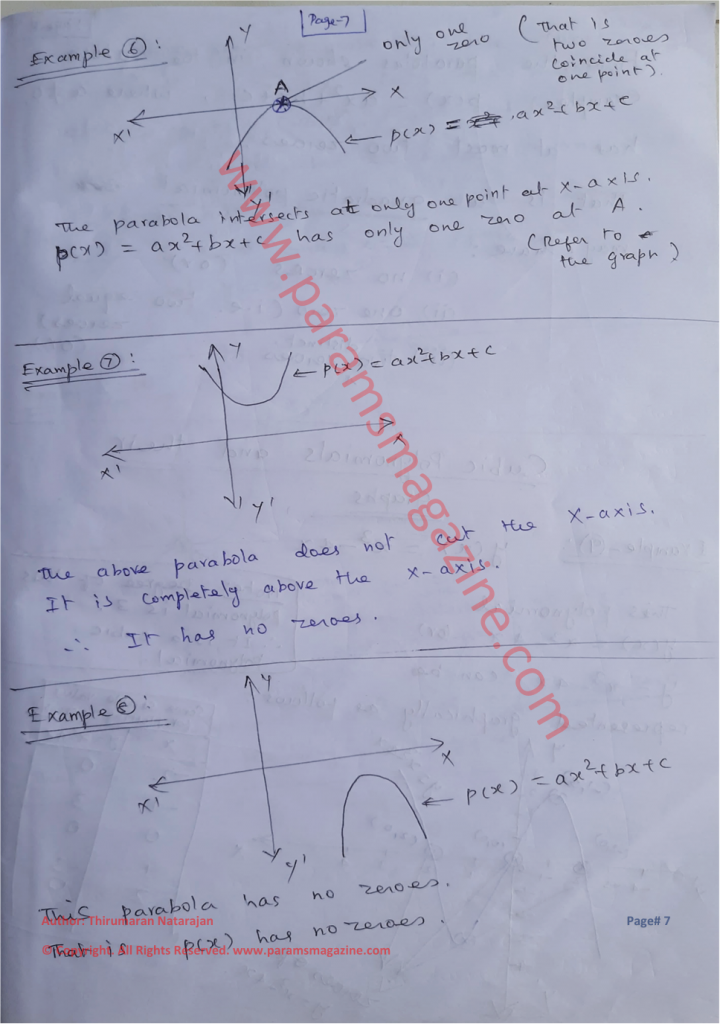 Page-7
Example 6 :
only one zero
(That is two zeroes coincide at one point).
Y
A
X
X'
p(x) = ax²+bx+c
Y'
The parabola intersects at only one point at x-axis.
p(x) = ax²+bx+c has only one zero at A.
(Refer to the graph)
Example 7 :
Y
p(x) = ax²+bx+c
X
X'
Y'
The above parabola does not cut the X-axis.
It is completely above the x-axis.
∴ It has no zeroes.
Example 8 :
Y
X
X'
p(x) = ax²+bx+c
Y'
This parabola has no zeroes.
Author: Thirumaran Natarajan
Page# 7
That is p(x) has no zeroes.
©Copyright. All Rights Reserved. www.paramsmagazine.com
www.paramsmagazine.com